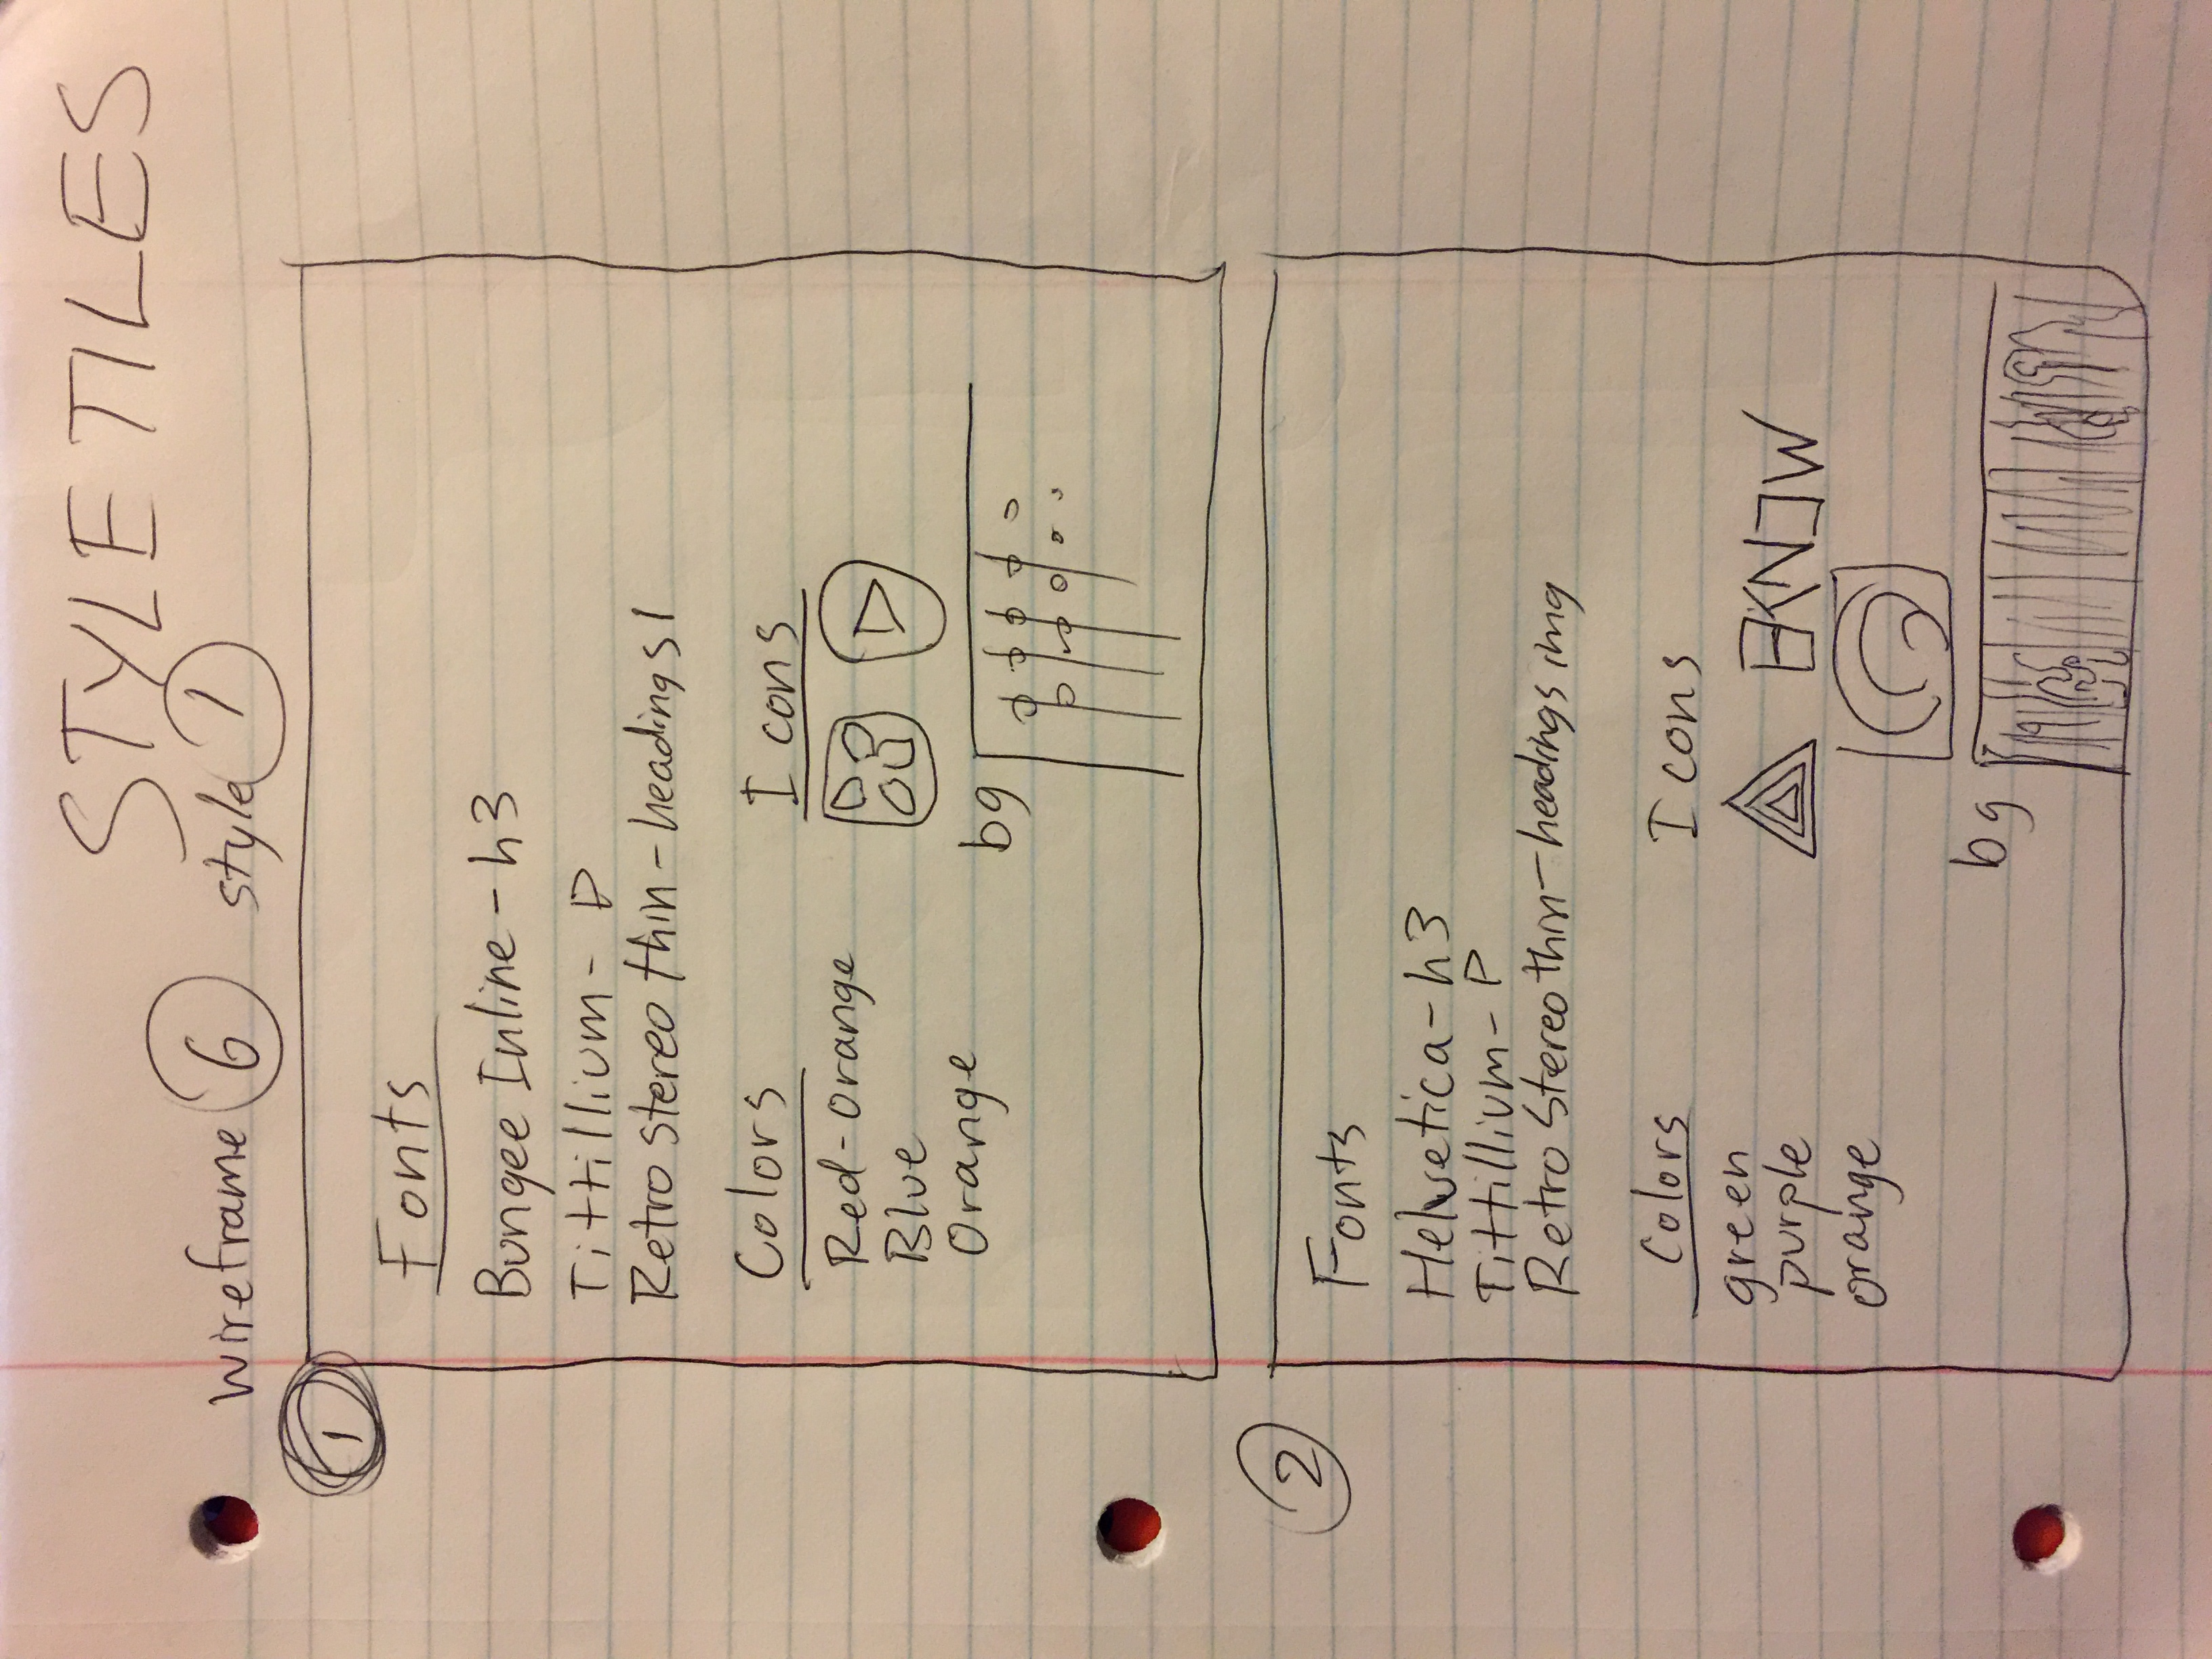 STYLE TILES
wireframe 6 style 1
1
Fonts
Bungee Inline - h3
Tittillium - P
Retro stereo thin - headings 1
Colors Icons
Red-orange
Blue
Orange
bg
2
Fonts
Helvetica - h3
Tittillium - P
Retro Stereo thin - headings img
Colors Icons
green
purple
orange
bg